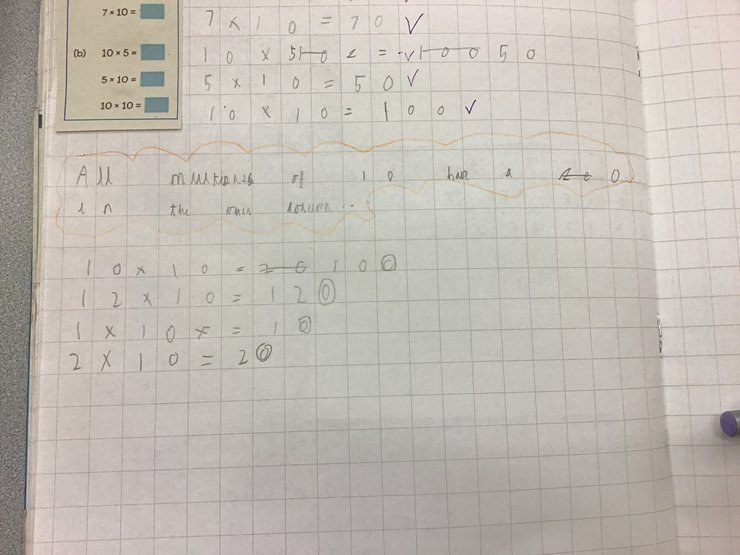 7 × 10 =
(b) 10 × 5 =
5 × 10 =
10 × 10 =
7 × 10 = 70 ✓
10 × 5 = 50
5 × 10 = 50 ✓
10 × 10 = 100 ✓
All multiples of 10 have a 0
in the ones column.
10 × 10 = 100
12 × 10 = 120
1 × 10 = 10
2 × 10 = 20